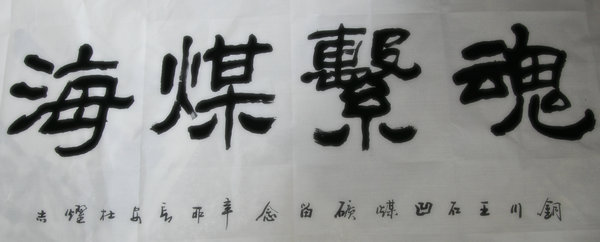 魂繫煤海
銅川王石凹煤礦留念辛卯長安杜燿